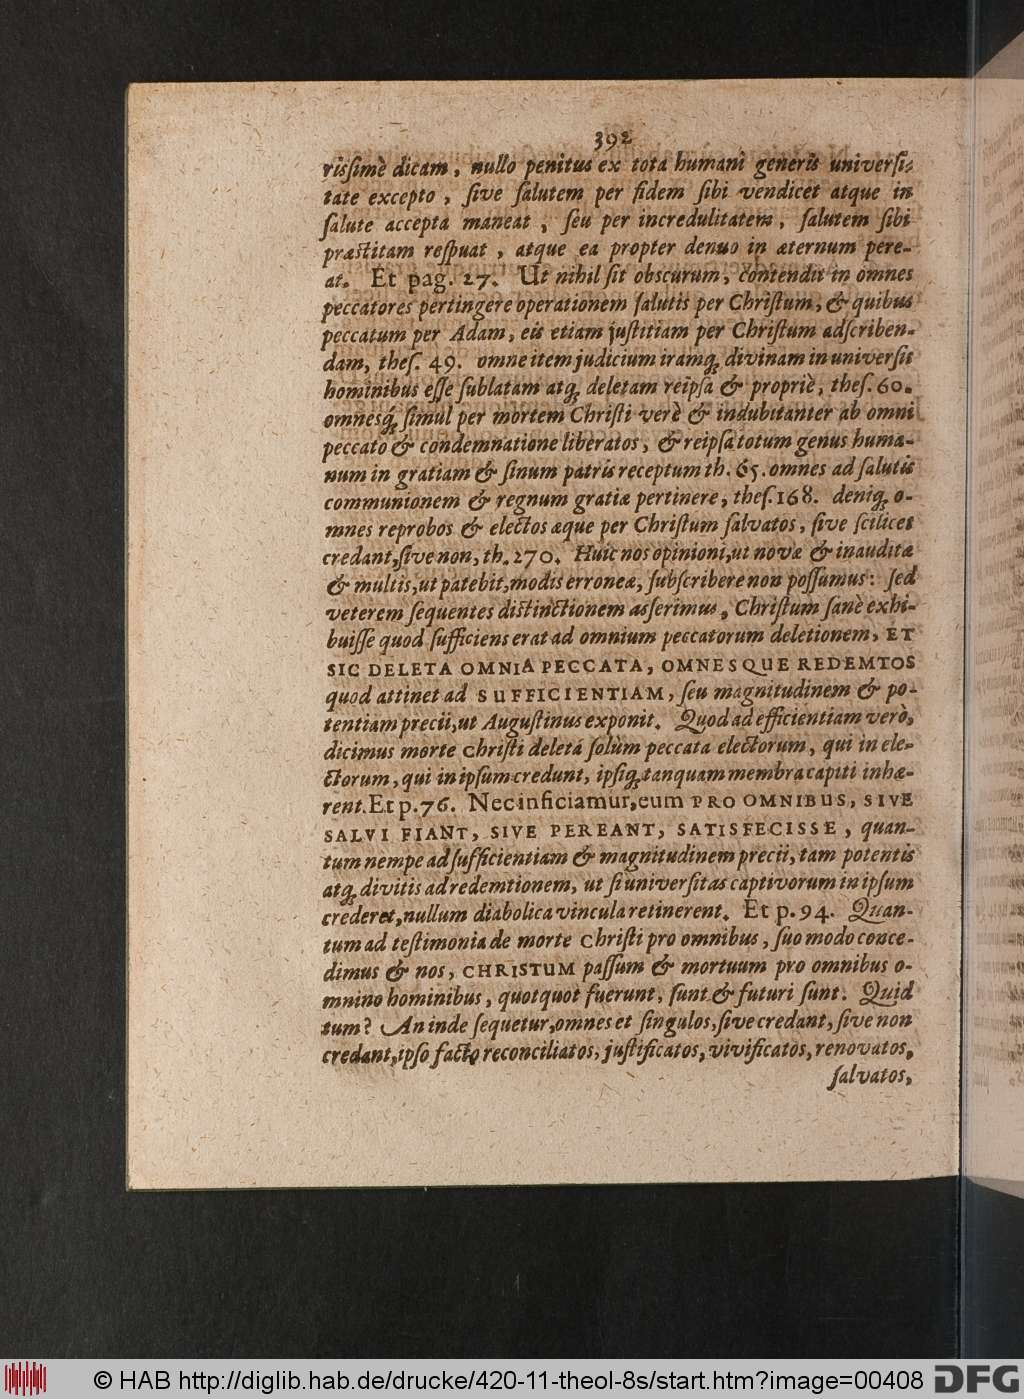 392
rissimè dicam, nullo penitus ex tota humani generis universi-
tate excepto, sive salutem per fidem sibi vendicet atque in
salute accepta maneat, seu per incredulitatem, salutem sibi
præstitam respuat, atque ea propter denuo in æternum pere-
at. Et pag. 27. Ut nihil sit obscurum, contendit in omnes
peccatores pertingere operationem salutis per Christum, & quibus
peccatum per Adam, eis etiam justitiam per Christum adscriben-
dam, thes. 49. omne item judicium iramq; divinam in universis
hominibus esse sublatam atq; deletam reipsa & propriè, thes. 60.
omnesq́; simul per mortem Christi verè & indubitanter ab omni
peccato & condemnatione liberatos, & reipsa totum genus huma-
num in gratiam & sinum patris receptum th. 65. omnes ad salutis
communionem & regnum gratiæ pertinere, thes. 168. deniq; o-
mnes reprobos & electos æque per Christum salvatos, sive scilicet
credant, sive non, th. 270. Huic nos opinioni, ut novæ & inauditæ
& multis, ut patebit, modis erroneæ, subscribere non possumus: sed
veterem sequentes distinctionem asserimus, Christum sanè exhi-
buisse quod sufficiens erat ad omnium peccatorum deletionem, ET
SIC DELETA OMNIA PECCATA, OMNESQUE REDEMTOS
quod attinet ad SUFFICIENTIAM, seu magnitudinem & po-
tentiam precii, ut Augustinus exponit. Quod ad efficientiam verò,
dicimus morte Christi deletá solùm peccata electorum, qui in ele-
ctorum, qui in ipsum credunt, ipsiq; tanquam membra capiti inhæ-
rent. Et p. 76. Nec inficiamur, eum PRO OMNIBUS, SIVE
SALVI FIANT, SIVE PEREANT, SATISFECISSE, quan-
tum nempe ad sufficientiam & magnitudinem precii, tam potentis
atq; divitis ad redemtionem, ut si universitas captivorum in ipsum
crederet, nullum diabolica vincula retinerent. Et p. 94. Quan-
tum ad testimonia de morte Christi pro omnibus, suo modo conce-
dimus & nos, CHRISTUM passum & mortuum pro omnibus o-
mnino hominibus, quotquot fuerunt, sunt & futuri sunt. Quid
tum? An inde sequetur, omnes et singulos, sive credant, sive non
credant, ipso facto reconciliatos, justificatos, vivificatos, renovatos,
salvatos,
© HAB http://diglib.hab.de/drucke/420-11-theol-8s/start.htm?image=00408
DFG